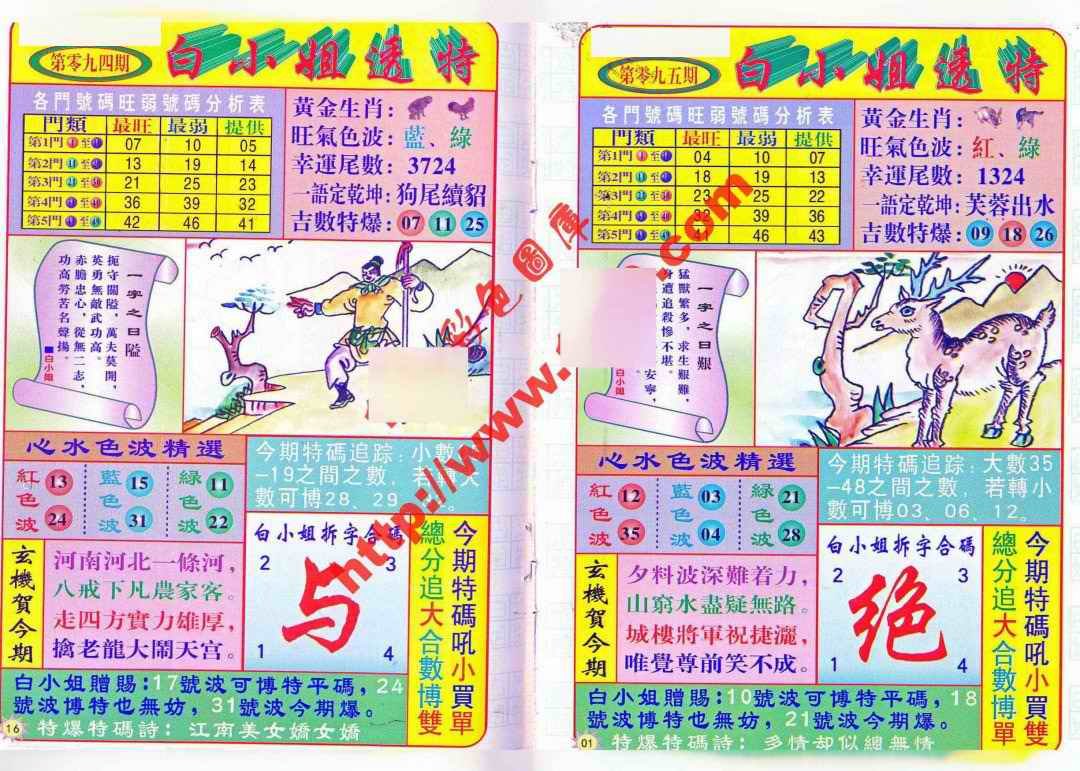 第零九四期
白小姐透特
各門號碼旺弱號碼分析表
門類 最旺 最弱 提供
第1門 至 07 10 05
第2門 至 13 19 14
第3門 至 21 25 23
第4門 至 36 39 32
第5門 至 42 46 41
黃金生肖:
旺氣色波: 藍、綠
幸運尾數: 3724
一語定乾坤: 狗尾續貂
吉數特爆: 07 11 25
一字之曰 隘
扼守關隘，萬夫莫開，
英勇無敵武功高。
赤膽忠心，從無二志，
功高勞苦名聲揚。
■白小姐
心水色波精選
紅色波 13 24
藍色波 15 31
綠色波 11 22
今期特碼追踪: 小數
-19之間之數，若轉大
數可博28、29
白小姐拆字合碼
2 3
与
1 4
今期特碼吼小買單
總分追大合數博雙
玄機賀今期
河南河北一條河，
八戒下凡農家客。
走四方實力雄厚，
擒老龍大鬧天宫。
白小姐贈賜:17號波可博特平碼，24
號波博特也無妨，31號波今期爆。
16
特爆特碼詩: 江南美女嬌女嬌
第零九五期
白小姐透特
各門號碼旺弱號碼分析表
門類 最旺 最弱 提供
第1門 至 04 10 07
第2門 至 18 19 13
第3門 至 23 25 22
第4門 至 32 39 36
第5門 至 41 46 43
黃金生肖:
旺氣色波: 紅、綠
幸運尾數: 1324
一語定乾坤: 芙蓉出水
吉數特爆: 09 18 26
一字之曰 艱
猛獸繁多，求生艱難，
身遭追殺慘不堪。
安寧，
白小姐
心水色波精選
紅色波 12 35
藍色波 03 04
綠色波 21 28
今期特碼追踪: 大數35
-48之間之數，若轉小
數可博03、06、12。
白小姐拆字合碼
2 3
绝
1 4
今期特碼吼小買雙
總分追大合數博單
玄機賀今期
夕料波深難着力，
山窮水盡疑無路。
城樓將軍祝捷灑，
唯覺尊前笑不成。
白小姐贈賜:10號波可博特平碼，18
號波博特也無妨，21號波今期爆。
01
特爆特碼詩: 多情却似總無情
http://www.
.com
彩色圖庫